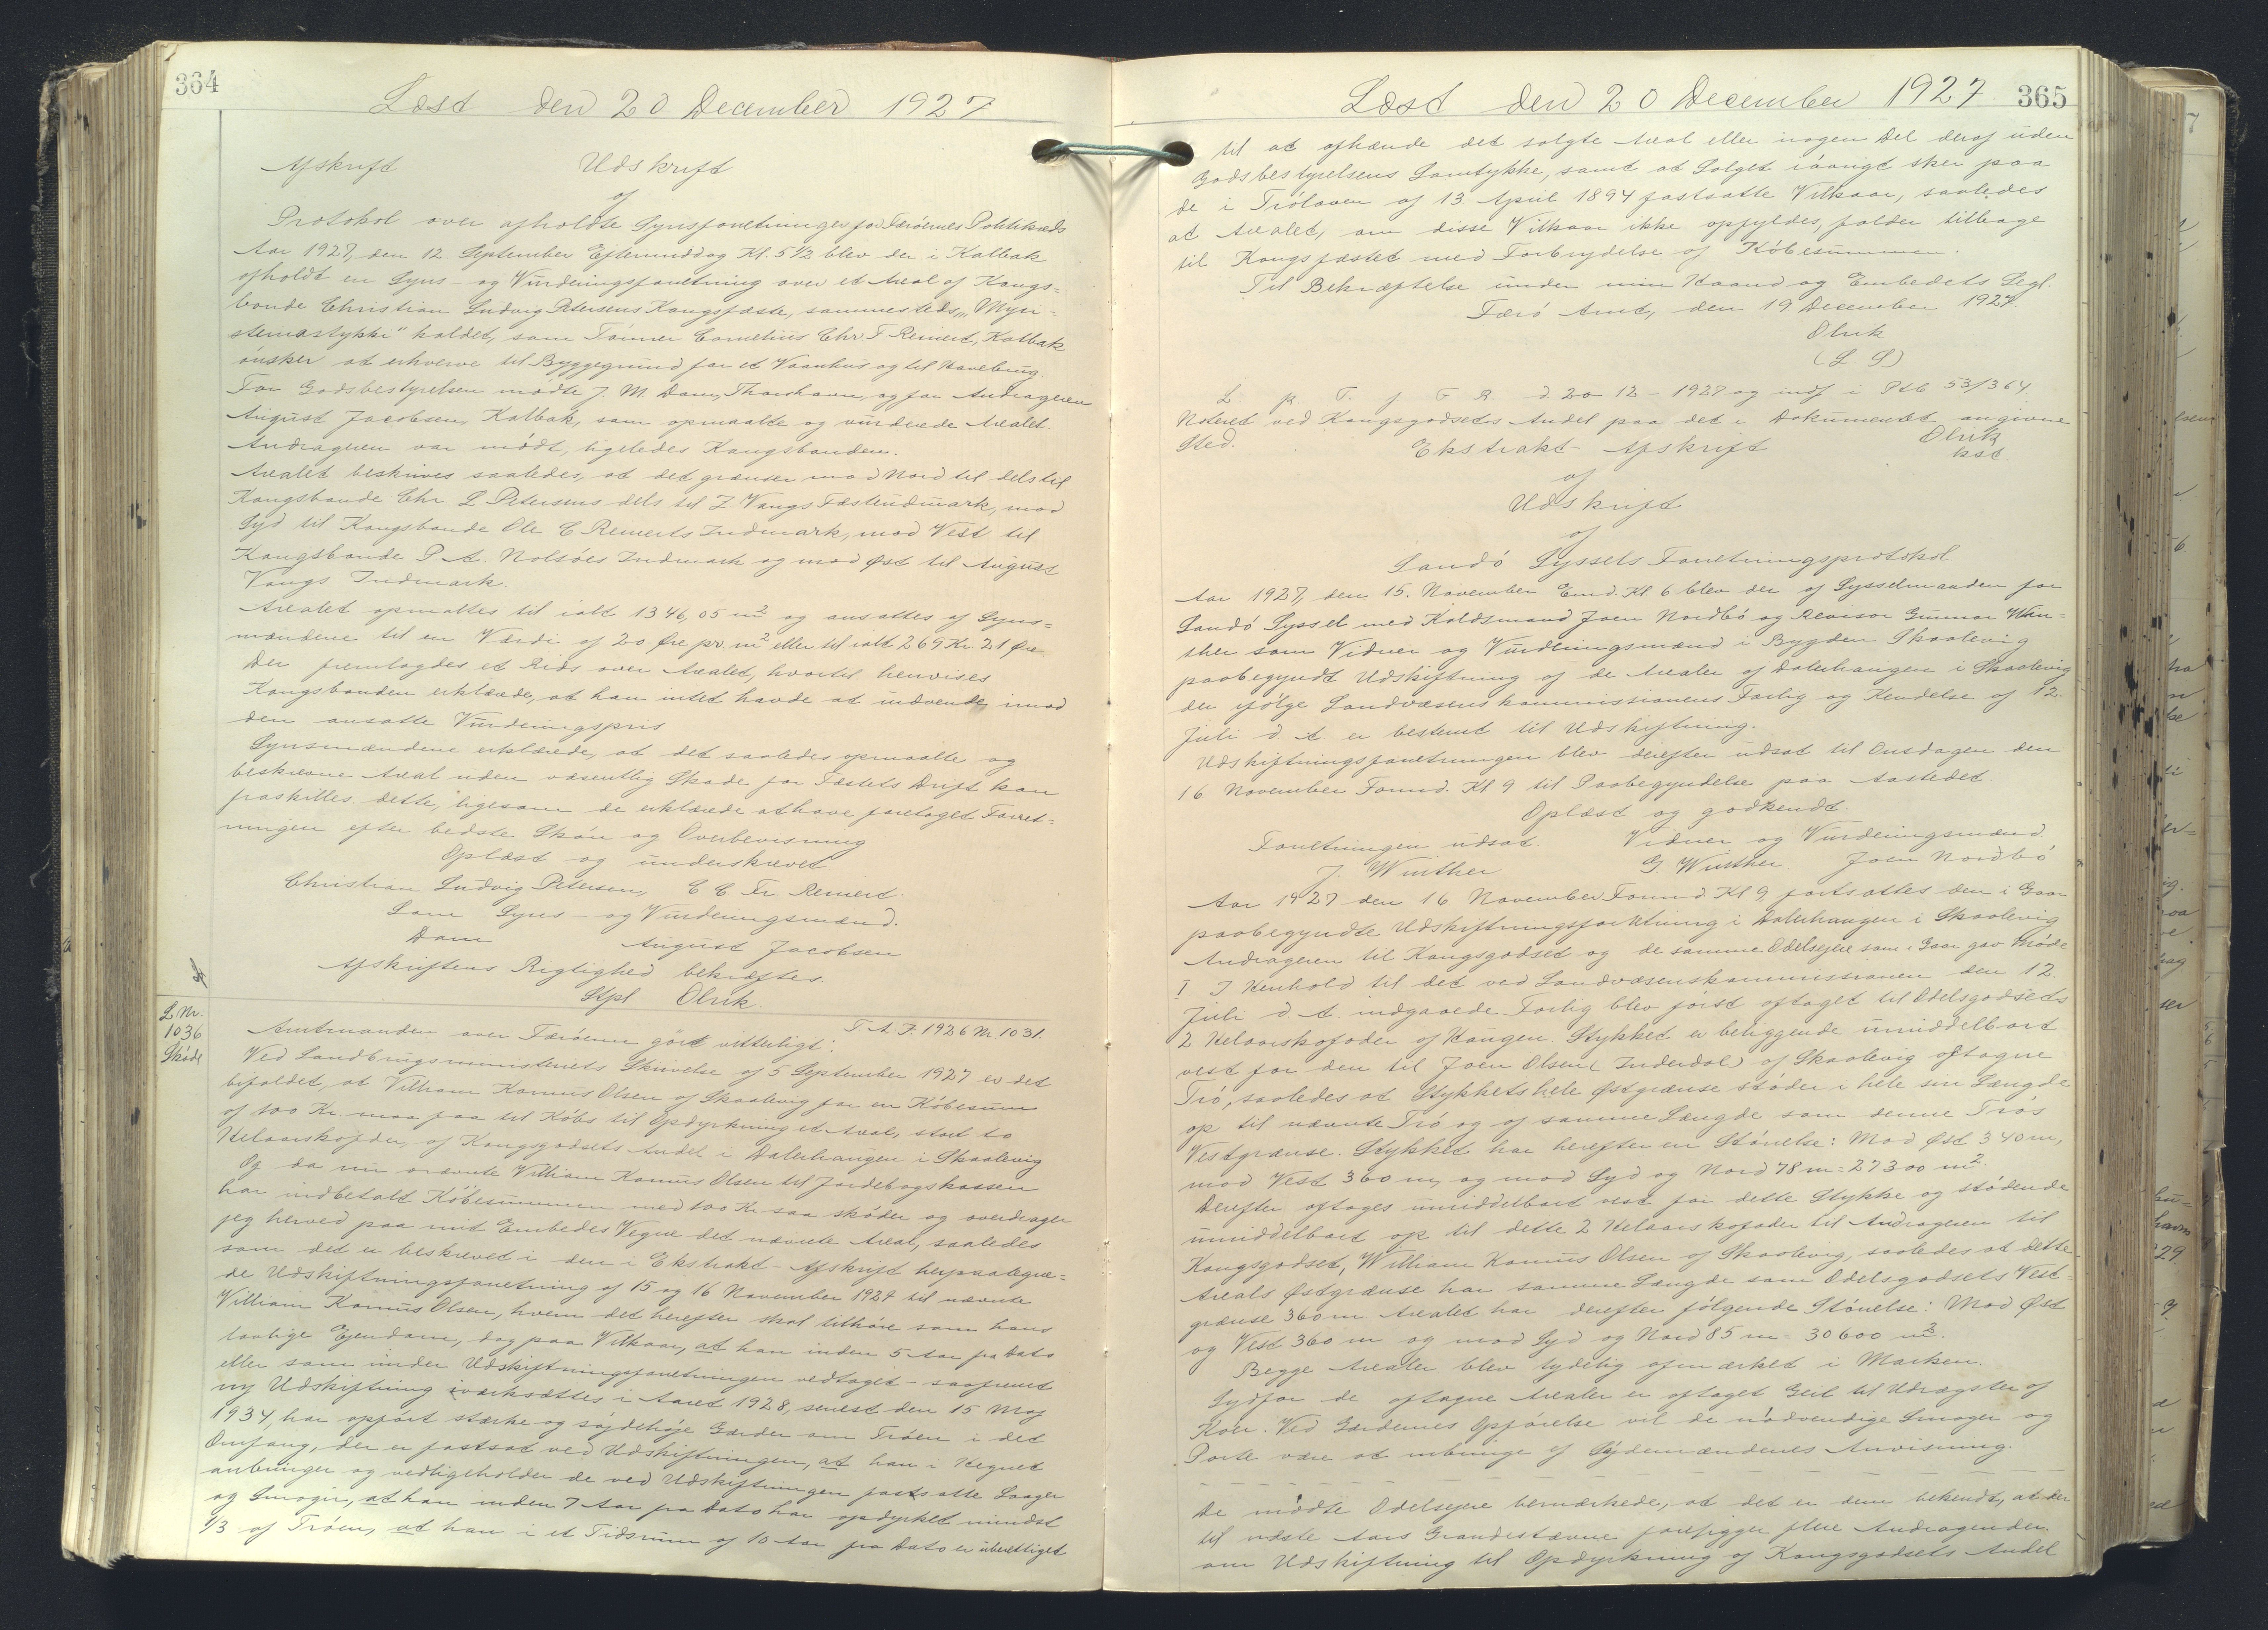 364
Læst den 20 December 1927
Afskrift Udskrift
af
Protokol over afholdte Synsforretninger for Færöernes Politikreds
Aar 1927, den 12. September Eftermiddag Kl. 5 1/2 blev der i Kalbak
afholdt en Syns- og Vurderingsforretning over et Areal af Kongs=
bonde Christian Ludvig Petersens Kongsfæste, sammesteds, "Myri-
steinastykki" kaldet, som Tömrer Cornelius Chr F Reinert, Kalbak
önsker at erhverve til Byggegrund for et Vaanhus og til Havebrug.
For Godsbestyrelsen mödte J. M. Dam, Thorshavn, og for Andrageren
August Jacobsen, Kalbak, som opmaalte og vurderede Arealet.
Andrageren var mödt, ligeledes Kongsbonden.
Arealet beskrives saaledes, at det grænser mod Nord til dels til
Kongsbonde Chr L Petersens dels til Z Vangs Fæsteindmark, mod
Syd til Kongsbonde Ole C Reinerts Indmark, mod Vest til
Kongsbonde P A. Nolsöes Indmark og mod Øst til August
Vangs Indmark.
Arealet opmaltes til ialt 1346,05 m2 og ansattes af Syns=
mændene til en Værdi af 20 Øre pr. m2 eller til ialt 269 Kr. 21 Øre
Der fremlagdes et Rids over Arealet, hvortil henvises
Kongsbonden erklærede, at han intet havde at indvende imod
den ansatte Vurderingspris
Synsmændene erklærede, at det saaledes opmaalte og
beskrevne Areal uden væsentlig Skade for Fæstets Drift kan
fraskilles dette, ligesom de erklærede at have foretaget Forret=
ningen efter bedste Skön og Overbevisning
Oplæst og underskrevet
Christian Ludvig Petersen, C C Fr. Reinert.
Som Syns- og Vurderingsmænd.
Dam August Jacobsen
Afskriftens Rigtighed bekræftes
Stpl Olrik.
L Nr.
1036
Sköde
T. A. F. 1926 Nr 1031.
Amtmanden over Færöerne gört vitterligt:
Ved Landbrugsministeriets Skrivelse af 5 September 1927 er det
bifaldet, at Villiam Kornus Olsen af Skaalevig for en Köbesum
af 100 Kr. maa faa til Köbs til Opdyrkning et Areal, stort to
Helaarskofoder, af Kongsgodsets Andel i Dalerhaugen i Skaalevig
Og da nu nævnte Villiam Kornus Olsen til Jordebogskassen
har indbetalt Köbesummen med 100 Kr. saa sköder og overdrager
jeg herved paa mit Embedes Vegne det nævnte Areal, saaledes
som det er beskrevet i den i Ekstrakt-Afskrift herpaategne=
de Udskiftningsforretning af 15 og 16 November 1927 til nævnte
Villiam Kornus Olsen, hvem det herefter skal tilhöre som hans
lovlige Ejendom, dog paa Vilkaar, at han inden 5 Aar fra Dato
eller som under Udskiftningsforretningen vedtaget - saafremt
ny Udskiftning iværksættes i Aaret 1928, senest den 15 Maj
1934, har opfört stærke og söjdehöje Gærder om Tröen i det
Omfang, der er fastsat ved Udskiftningen, at han i Hegnet
anbringer og vedligeholder de ved Udskiftningen fastsatte Laager
og Smoger, at han inden 7 Aar fra Dato har opdyrket mindst
1/3 af Tröen, at han i et Tidsrum af 10 Aar fra Dato er uberettiget
Læst den 20 December 1927 365
til at afhænde det solgte Areal eller nogen Del deraf uden
Godsbestyrelsens Samtykke, samt at Salget iövrigt sker paa
de i Trölaven af 13 April 1894 fastsatte Vilkaar, saaledes
at Arealet, om disse Vilkaar ikke opfyldes, falder tilbage
til Kongsfæstet med Forbrydelse af Köbesummen.
Til Bekræftelse under min Haand og Embedets Segl.
Færö Amt, den 19 December 1927
Olrik
(L S)
L p. T. f F R. d 20-12-1927 og indf i Ptb 53/364
Noteret ved Kongsgodsets Andel paa det i Dokumentet angivne
Sted. Olrik
kst.
Ekstrakt-Afskrift
af
Udskrift
af
Sandö Syssels Forretningsprotokol
Aar 1927, den 15. November Emd. Kl 6 blev der af Sysselmanden for
Sandö Syssel med Koldsmand Joen Nordbö og Revisor Gunnar Win-
ther som Vidner og Vurderingsmænd i Bygden Skaalevig
paabegyndt Udskiftning af de Arealer af Dalerhaugen i Skaalevig
der ifölge Landvæsenskommissionens Forlig og Kendelse af 12.
Juli d. A. er bestemt til Udskiftning.
Udskiftningsforretningen blev derefter udsat til Onsdagen den
16 November Formd. Kl 9 til Paabegyndelse paa Aastedet.
Oplæst og godkendt.
Forretningen udsat. Vidner og Vurderingsmænd
J. Winther G. Winther. Joen Nordbö
Aar 1927 den 16 November Formd. Kl 9, fortsattes den i Gaar
paabegyndte Udskiftningsforretning i Dalerhaugen i Skaalevig
Andrageren til Kongsgodset og de samme Odelsejere som i Gaar gav Möde
I I Henhold til det ved Landvæsenskommissionen den 12.
Juli d. A. indgaaede Forlig blev först aftaget til Odelsgodsets
2 Helaarskofoder af Haugen. Stykket er beliggende umiddelbart
vest for den til Joen Olsen (Inderdal) af Skaalevig aftagne
Trö, saaledes at Stykkets hele Østgrænse stöder i hele sin Længde
op til nævnte Trö og af samme Længde som denne Trös
Vestgrænse. Stykket har herefter en Störrelse: Mod Øst 340 m,
mod Vest 360 m, og mod Syd og Nord 78 m = 27300 m2.
Derefter aftages umiddelbart vest for dette Stykke og stödende
umiddelbart op til dette 2 Helaarskofoder til Andrageren til
Kongsgodset, William Kornus Olsen af Skaalevig, saaledes at dette
Areals Østgrænse har samme Længde som Odelsgodsets Vest-
grænse 360 m Arealet har derefter fölgende Störrelse: Mod Øst
og Vest 360 m og mod Syd og Nord 85 m = 30600 m2.
Begge Arealer blev tydelig afmærket i Marken.
Sydfor de aftagne Arealer er aftaget Geil til Udrægster af
Köer. Ved Gærdernes Opförelse vil de nödvendige Smoger og
Porte være at anbringe ef Söjdemændenes Anvisning.
De mödte Odelsejere bemærkede, at det er dem bekendt, at der
til næste Aars Grandestævne foreligger flere Andragender
om Udskiftning til Opdyrkning af Kongsgodsets Andel